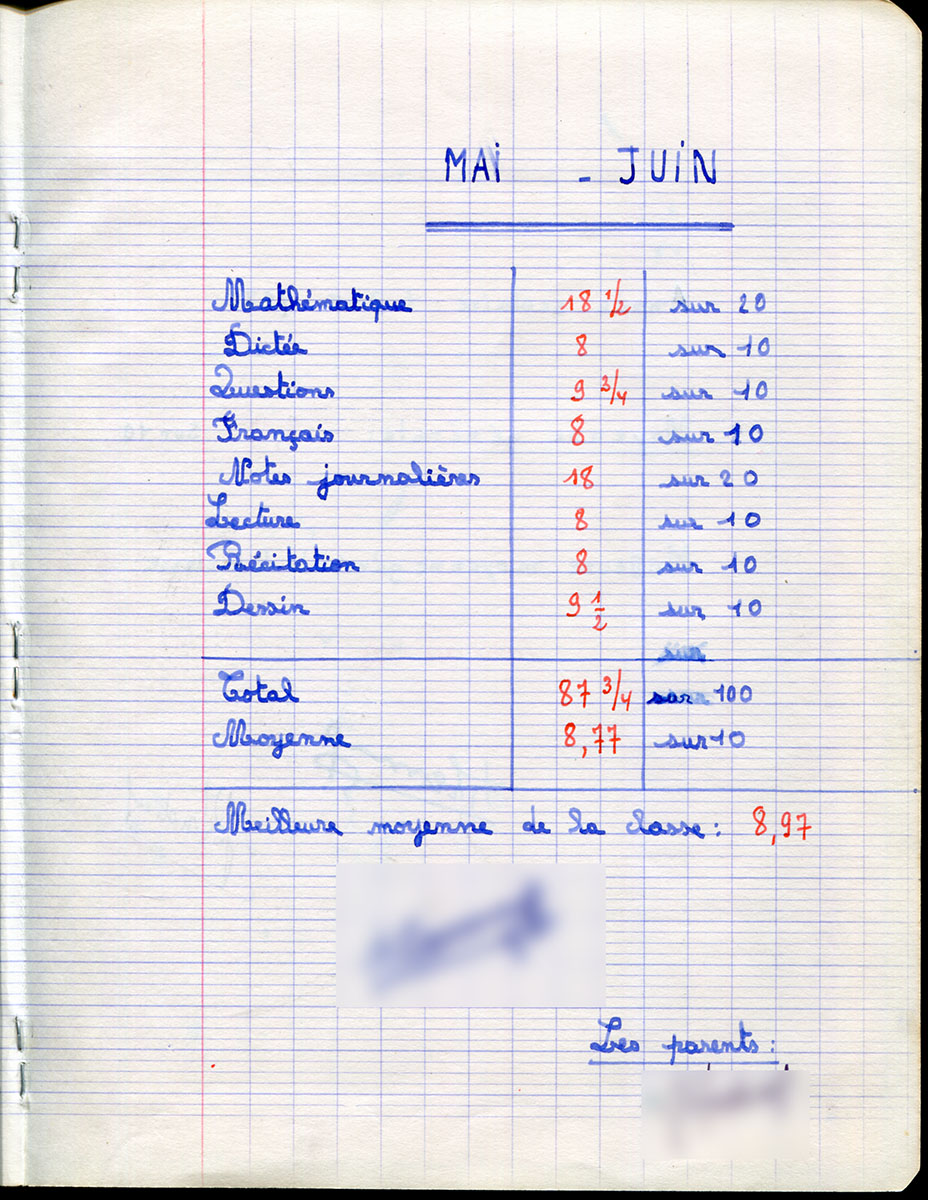 MAi - JUiN
Mathématique 18 1/2 sur 20
Dictée 8 sur 10
Questions 9 3/4 sur 10
Français 8 sur 10
Notes journalières 18 sur 20
Lecture 8 sur 10
Récitation 8 sur 10
Dessin 9 1/2 sur 10
sur
Total 87 3/4 sur 100
Moyenne 8,77 sur 10
Meilleure moyenne de la classe : 8,97
Les parents :